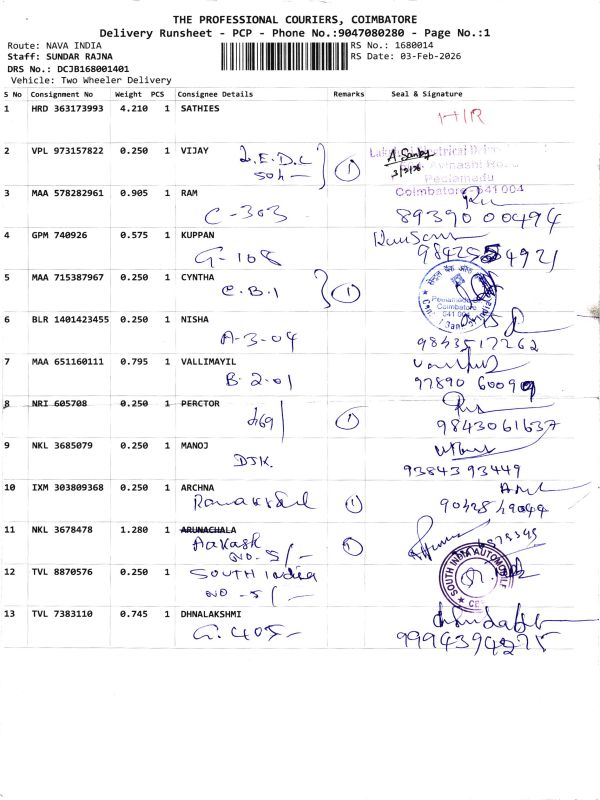 THE PROFESSIONAL COURIERS, COIMBATORE
Delivery Runsheet - PCP - Phone No.:9047080280 - Page No.:1
Route: NAVA INDIA
RS No.: 1680014
Staff: SUNDAR RAJNA
RS Date: 03-Feb-2026
DRS No.: DCJB168001401
Vehicle: Two Wheeler Delivery
S No Consignment No Weight PCS Consignee Details Remarks Seal & Signature
1 HRD 363173993 4.210 1 SATHIES
HIR
2 VPL 973157822 0.250 1 VIJAY
L.E.D.C
1
3/2/26
Peelamadu
Coimbatore - 641 004
3 MAA 578282961 0.905 1 RAM
C-303
89390 00494
4 GPM 740926 0.575 1 KUPPAN
G-108
5 MAA 715387967 0.250 1 CYNTHA
C.B.1
1
Coimbatore
641 004
6 BLR 1401423455 0.250 1 NISHA
A-3-04
98435 17262
7 MAA 651160111 0.795 1 VALLIMAYIL
B. 2.01
97890 60090
8 NRI 605708 0.250 1 PERCTOR
1
98430 61637
9 NKL 3685079 0.250 1 MANOJ
DJK.
93843 93449
10 IXM 303809368 0.250 1 ARCHNA
1
11 NKL 3678478 1.280 1 ARUNACHALA
Aakash
NO. 5/-
1
12 TVL 8870576 0.250 1
SOUTH India
NO - 5/-
SOUTH INDIA AUTOMOBILE
13 TVL 7383110 0.745 1 DHNALAKSHMI
G. 405-